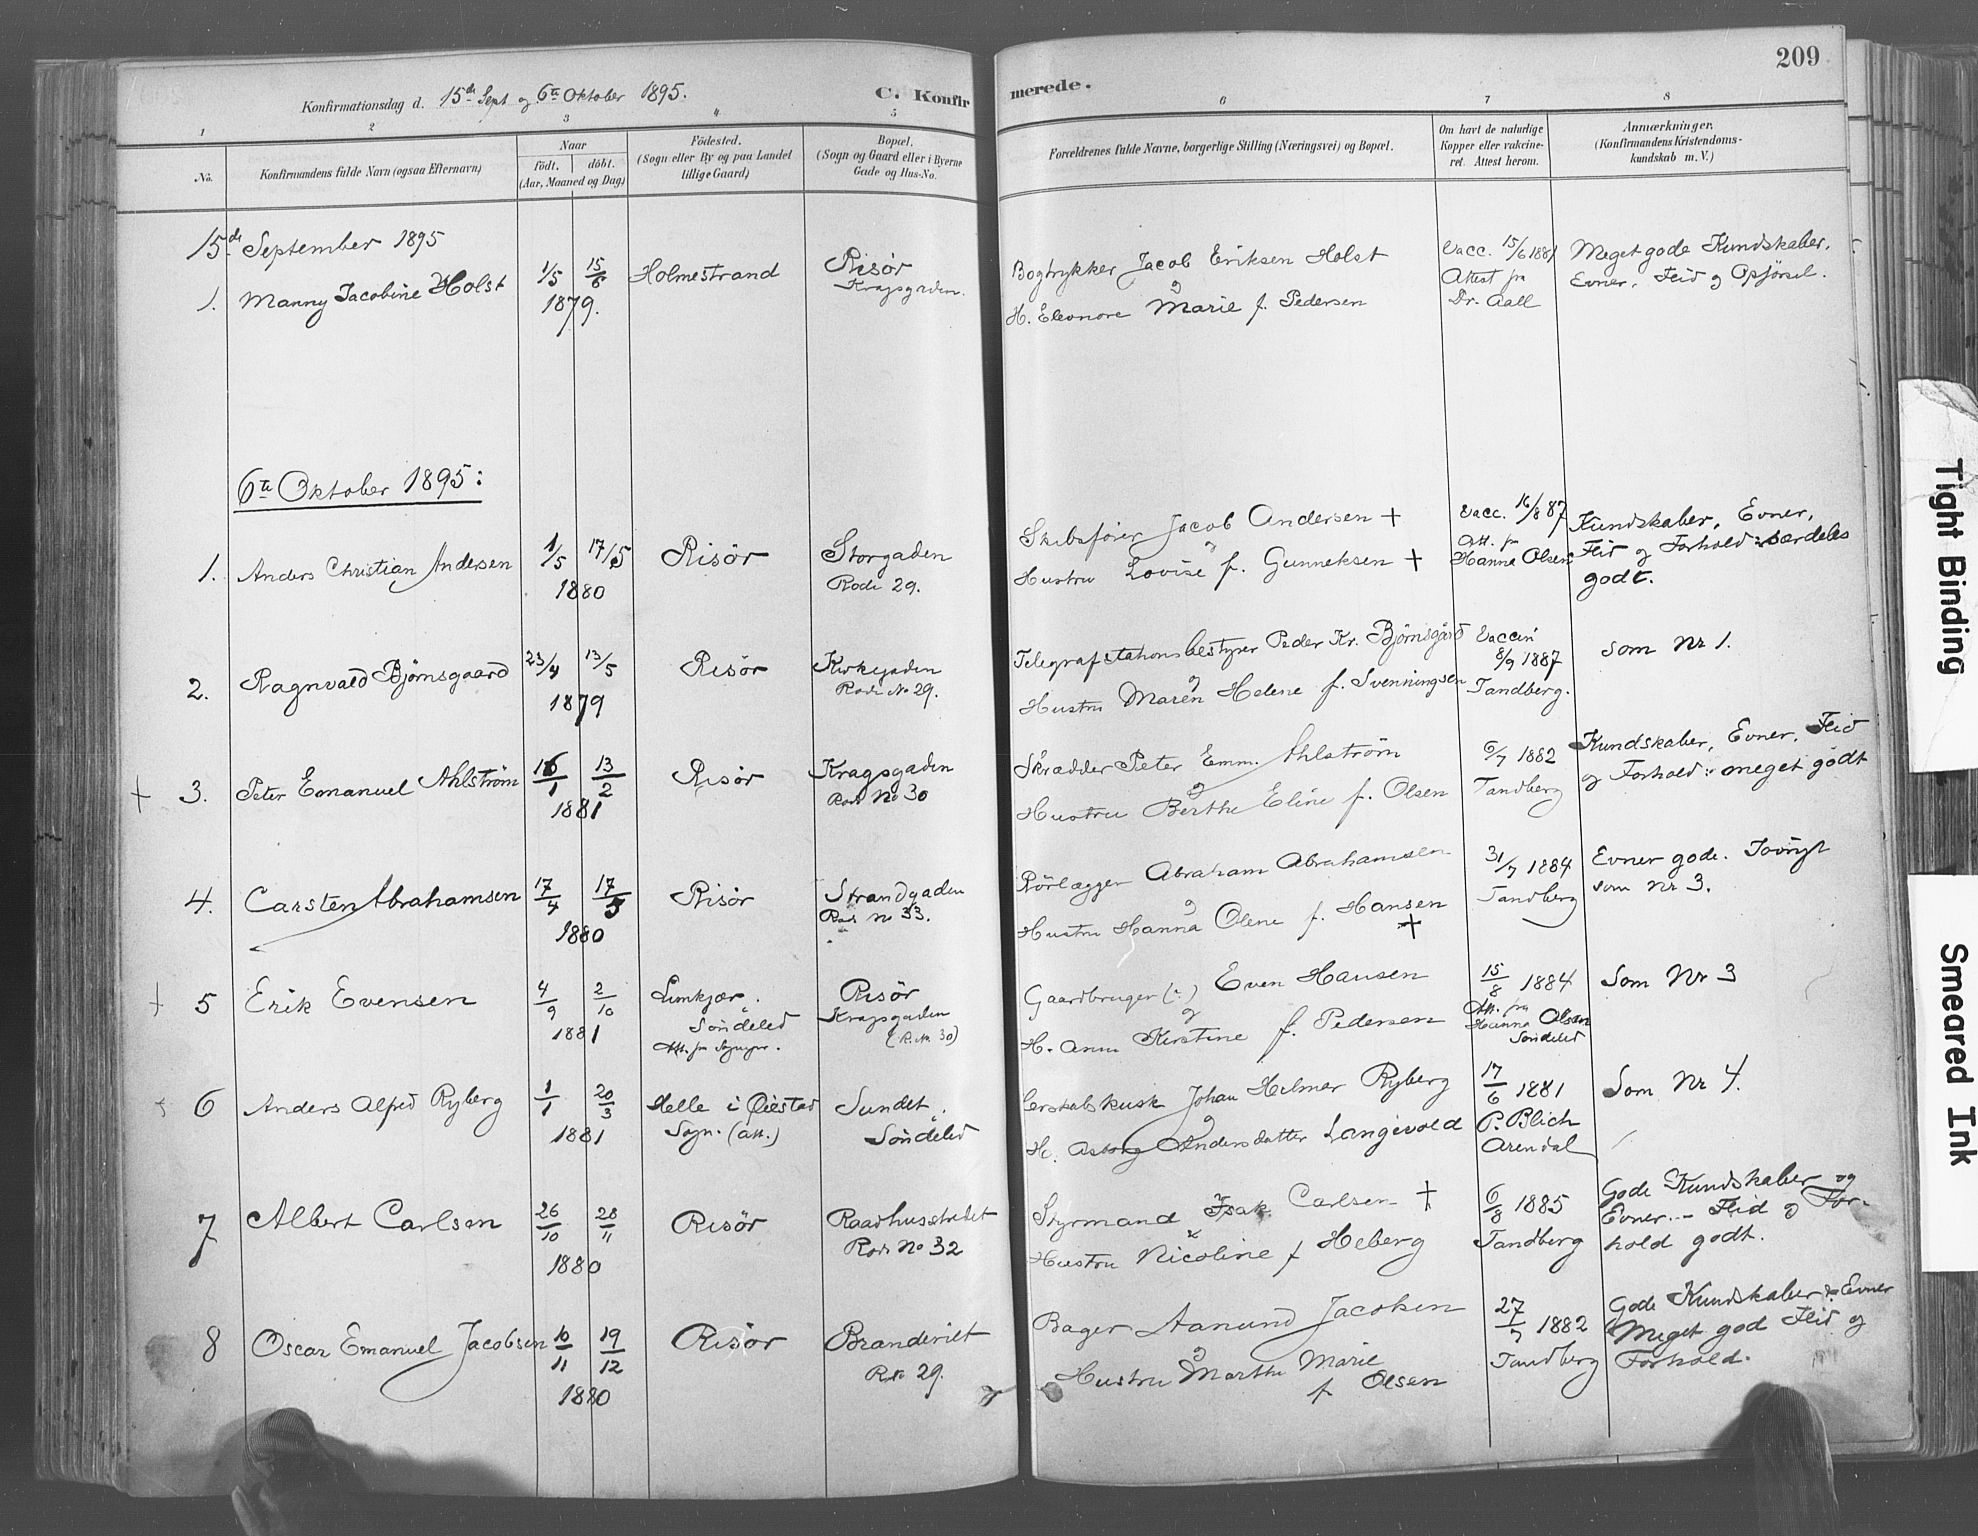 209
Konfirmationsdag d. 15de Sept og 6te Oktober 1895.
C. Konfirmerede.
1 2 3 4 5 6 7 8
No.
Konfirmandens fulde Navn (ogsaa Efternavn)
Naar
födt. döbt.
(Aar, Maaned og Dag)
Födested.
(Sogn eller By og paa Landet
tillige Gaard)
Bopæl.
(Sogn og Gaard eller i Byerne
Gade og Hus-No.
Forældrenes fulde Navne, borgerlige Stilling (Næringsvei) og Bopæl.
Om havt de naturlige
Kopper eller vakcine-
ret. Attest herom.
Anmærkninger.
(Konfirmandens Kristendoms-
kundskab m. V.)
15de September 1895
1. Manny Jacobine Holst
1/5 15/6
1879.
Holmestrand
Risør
Kragsgaden.
Bogtrykker Jacob Eriksen Holst
og
H. Eleonore Marie f. Pedersen
Vacc. 15/6 1881
Attest fra
Dr. Aall
Meget gode Kundskaber,
Evner, Flid og Opførsel.
6te Oktober 1895:
1. Anders Christian Andersen
1/5 17/5
1880
Risør
Storgaden
Rode 29.
Skibsfører Jacob Andersen +
og
Hustru Lovise f. Gunneksen +
Vacc. 16/8 87
Att. fra
Hanna Olsen
Kundskaber, Evner,
Flid og Forhold: særdeles
godt.
2. Ragnvald Bjørnsgaard
23/4 13/5
1879
Risør
Kirkegaden
Rode No 29.
Telegrafstationsbestyrer Peder Kr. Bjørnsgård
og
Hustru Maren Helene f. Svenningsen
Vaccin
8/9 1887
Tandberg.
Som Nr 1.
+ 3. Peter Emanuel Ahlström
16/1 13/2
1881
Risør
Kragsgaden
Rode No 30
Skrædder Peter Emm. Ahlström
og
Hustru Berthe Eline f. Olsen
6/7 1882
Tandberg
Kundskaber, Evner, Flid
og Forhold: meget godt
4. Carsten Abrahamsen
17/4 17/5
1880
Risør
Strandgaden
Rode No 33.
Rörlægger Abraham Abrahamsen
og
Hustru Hanna Olene f. Hansen
+
31/7 1884
Tandberg
Evner gode. Iøvrigt
som Nr 3.
+ 5 Erik Evensen
4/9 2/10
1881
Limkjær.
Söndeled
Att. fra Sognepr.
Risør
Kragsgaden
(R. No. 30)
Gaardbruger (:) Even Hansen
og
H. Anne Kirstine f. Pedersen
15/8 1884
Att. fra
Hanna Olsen
Söndeled
Som Nr 3
6 Anders Alfred Ryberg
1/1 20/3
1881
Helle i Øiestad
Sogn. (att.)
Sundet.
Söndeled
Johan Hilmer Ryberg
og
H. Asborg Andersdatter Langevold
17/6 1881
P. Blich
Arendal
Som Nr 4.
7 Albert Carlsen
26/10 28/11
1880
Risør
Raadhusstrædet
Rode No 32
Styrmand Isak Carlsen +
&
Hustru Nicoline f Heberg
6/8 1885
Tandberg
Gode Kundskaber og
Evner. – Flid og For-
hold godt.
8 Oscar Emanuel Jacobsen
10/11 19/12
1880
Risør
Brandevilt
R. No 29.
Bager Aanund Jacobsen
og
Hustru Marthe Marie
f Olsen
27/7 1882
Tandberg
Gode Kundskaber & Evner
Meget god Flid og
Forhold.
Tight Binding
Smeared Ink